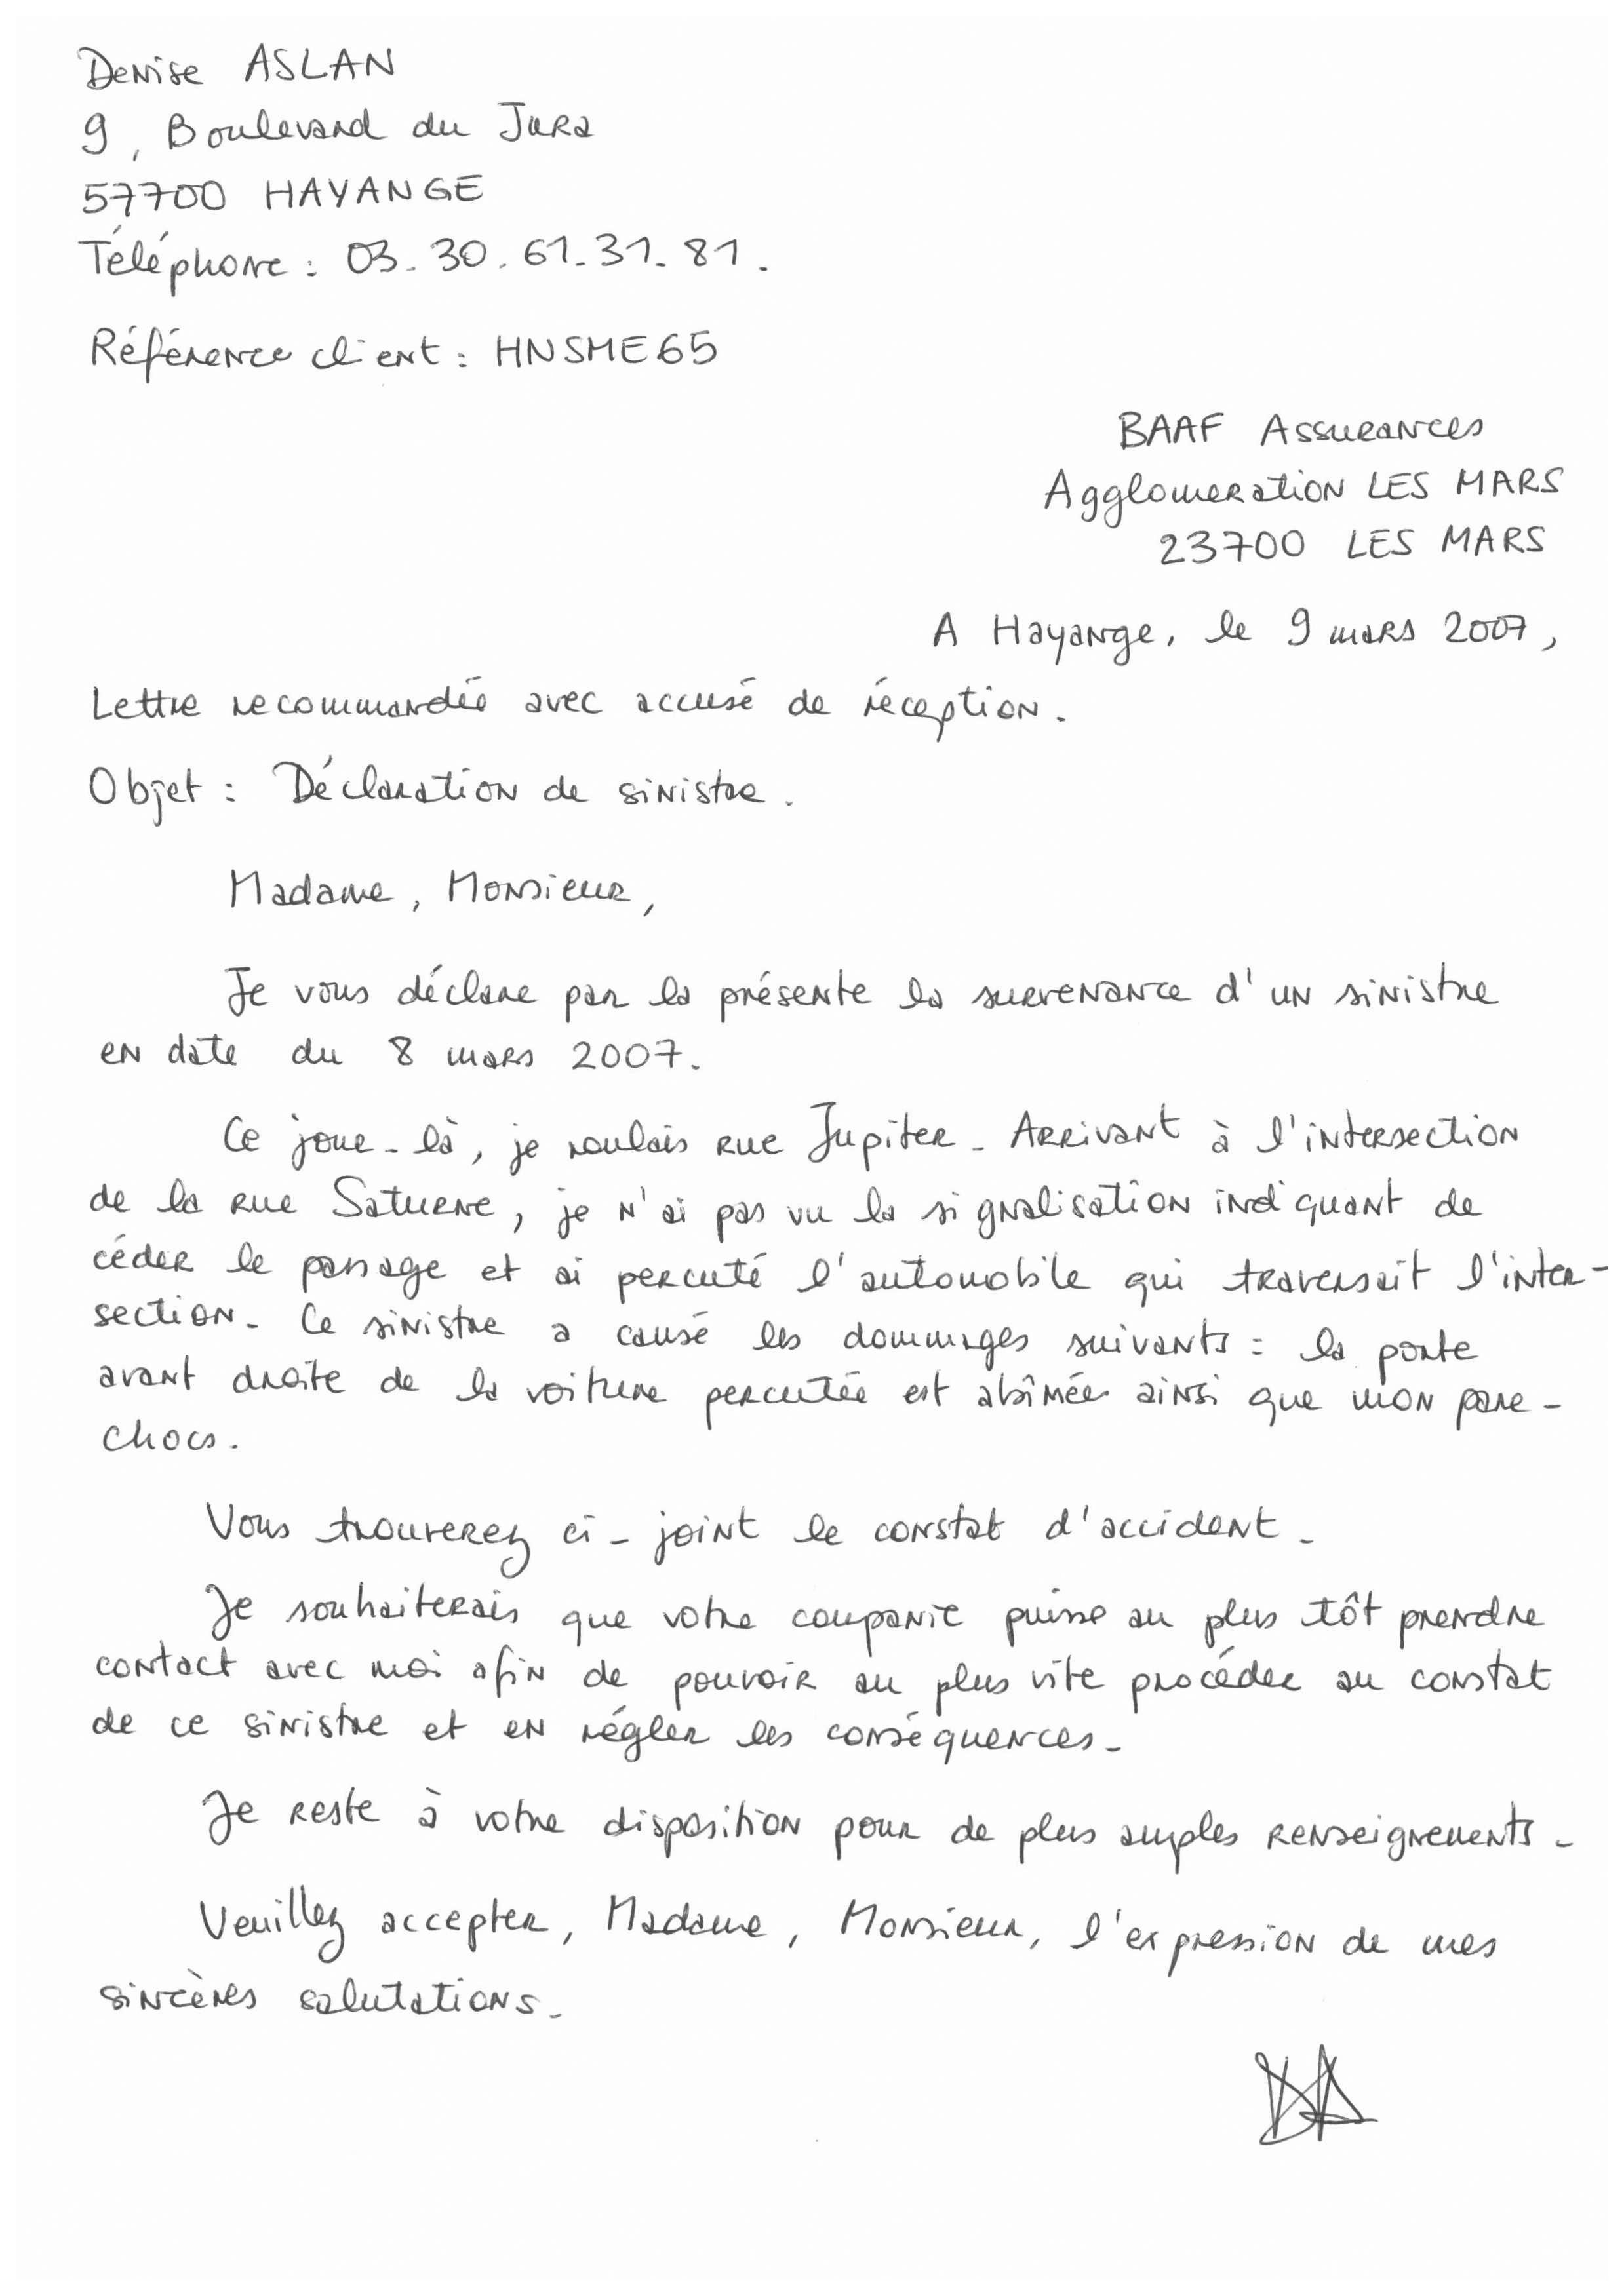 Denise ASLAN
9, Boulevard du Jura
57700 HAYANGE
Téléphone : 03.30.61.31.81.
Référence client : HNSME65
BAAF Assurances
Agglomeration LES MARS
23700 LES MARS
A Hayange, le 9 mars 2007,
Lettre recommandée avec accusé de réception.
Objet : Déclaration de sinistre.
Madame, Monsieur,
Je vous déclare par la présente la survenance d'un sinistre
en date du 8 mars 2007.
Ce jour-là, je roulais rue Jupiter. Arrivant à l'intersection
de la rue Saturne, je n'ai pas vu la signalisation indiquant de
céder le passage et ai percuté l'automobile qui traversait l'inter-
section. Ce sinistre a causé les dommages suivants : la porte
avant droite de la voiture percutée est abîmée ainsi que mon pare-
chocs.
Vous trouverez ci-joint le constat d'accident.
Je souhaiterais que votre companie puisse au plus tôt prendre
contact avec moi afin de pouvoir au plus vite procéder au constat
de ce sinistre et en régler les conséquences.
Je reste à votre disposition pour de plus amples renseignements.
Veuillez accepter, Madame, Monsieur, l'expression de mes
sincères salutations.